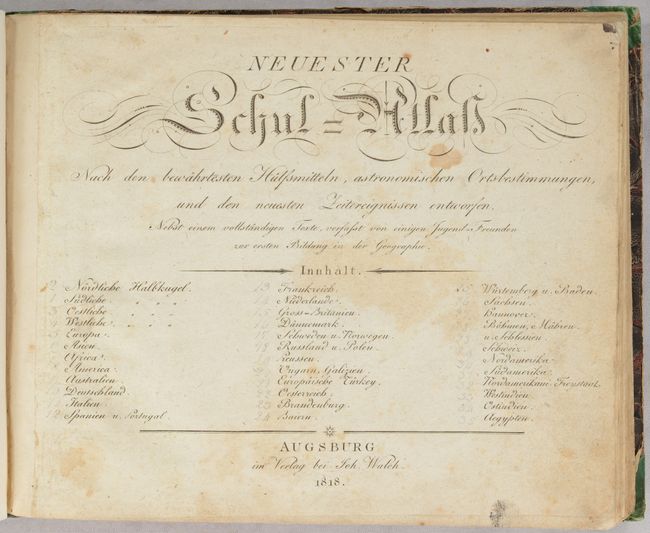 NEUESTER
Schul=Atlaß
Nach den bewährtesten Hülfsmitteln, astronomischen Ortsbestimmungen,
und den neuesten Zeitereignissen entworfen.
Nebst einem vollständigen Texte, verfaßt von einigen Jugend-Freunden
zur ersten Bildung in der Geographie.
Innhalt.
2 Nördliche Halbkugel.
1 Südliche
3 Oestliche
4 Westliche
5 Europa.
Asien.
Africa.
America.
Australien
Deutschland.
Italien.
12 Spanien u. Portugal.
13 Frankreich.
14 Niederlande.
15 Gross-Britanien.
Dännemark.
Schweden u. Norwegen.
Russland u. Polen.
Preussen.
Ungarn, Galizien.
Europäische Türkey.
Oesterreich.
Brandenburg.
24 Baiern.
Würtemberg u. Baden.
Sachsen.
Hannover.
Böhmen, Mähren
u. Schlesien
Schweiz.
Nordamerika.
Südamerika.
Nordamerikan. Freystaat.
Westindien.
Ostindien.
Aegypten.
AUGSBURG
im Verlag bei Joh. Walch.
1818.